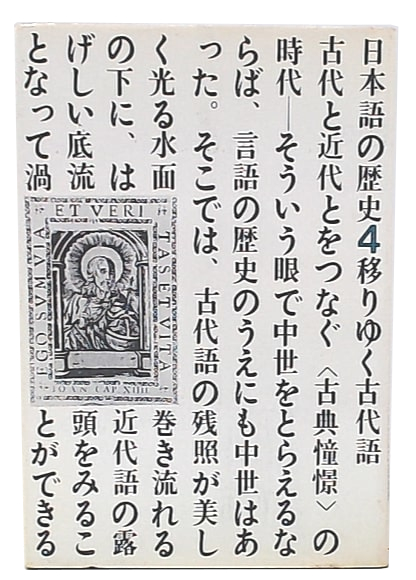 日本語の歴史4移りゆく古代語
古代と近代とをつなぐ〈古典憧憬〉の
時代―そういう眼で中世をとらえるな
らば、言語の歴史のうえにも中世はあ
った。そこでは、古代語の残照が美し
く光る水面
の下に、は
げしい底流
となって渦
巻き流れる
近代語の露
頭をみるこ
とができる
EGO SVM VIA
ET VERI
TAS ET VITA
IOAN CAP. XIIII.